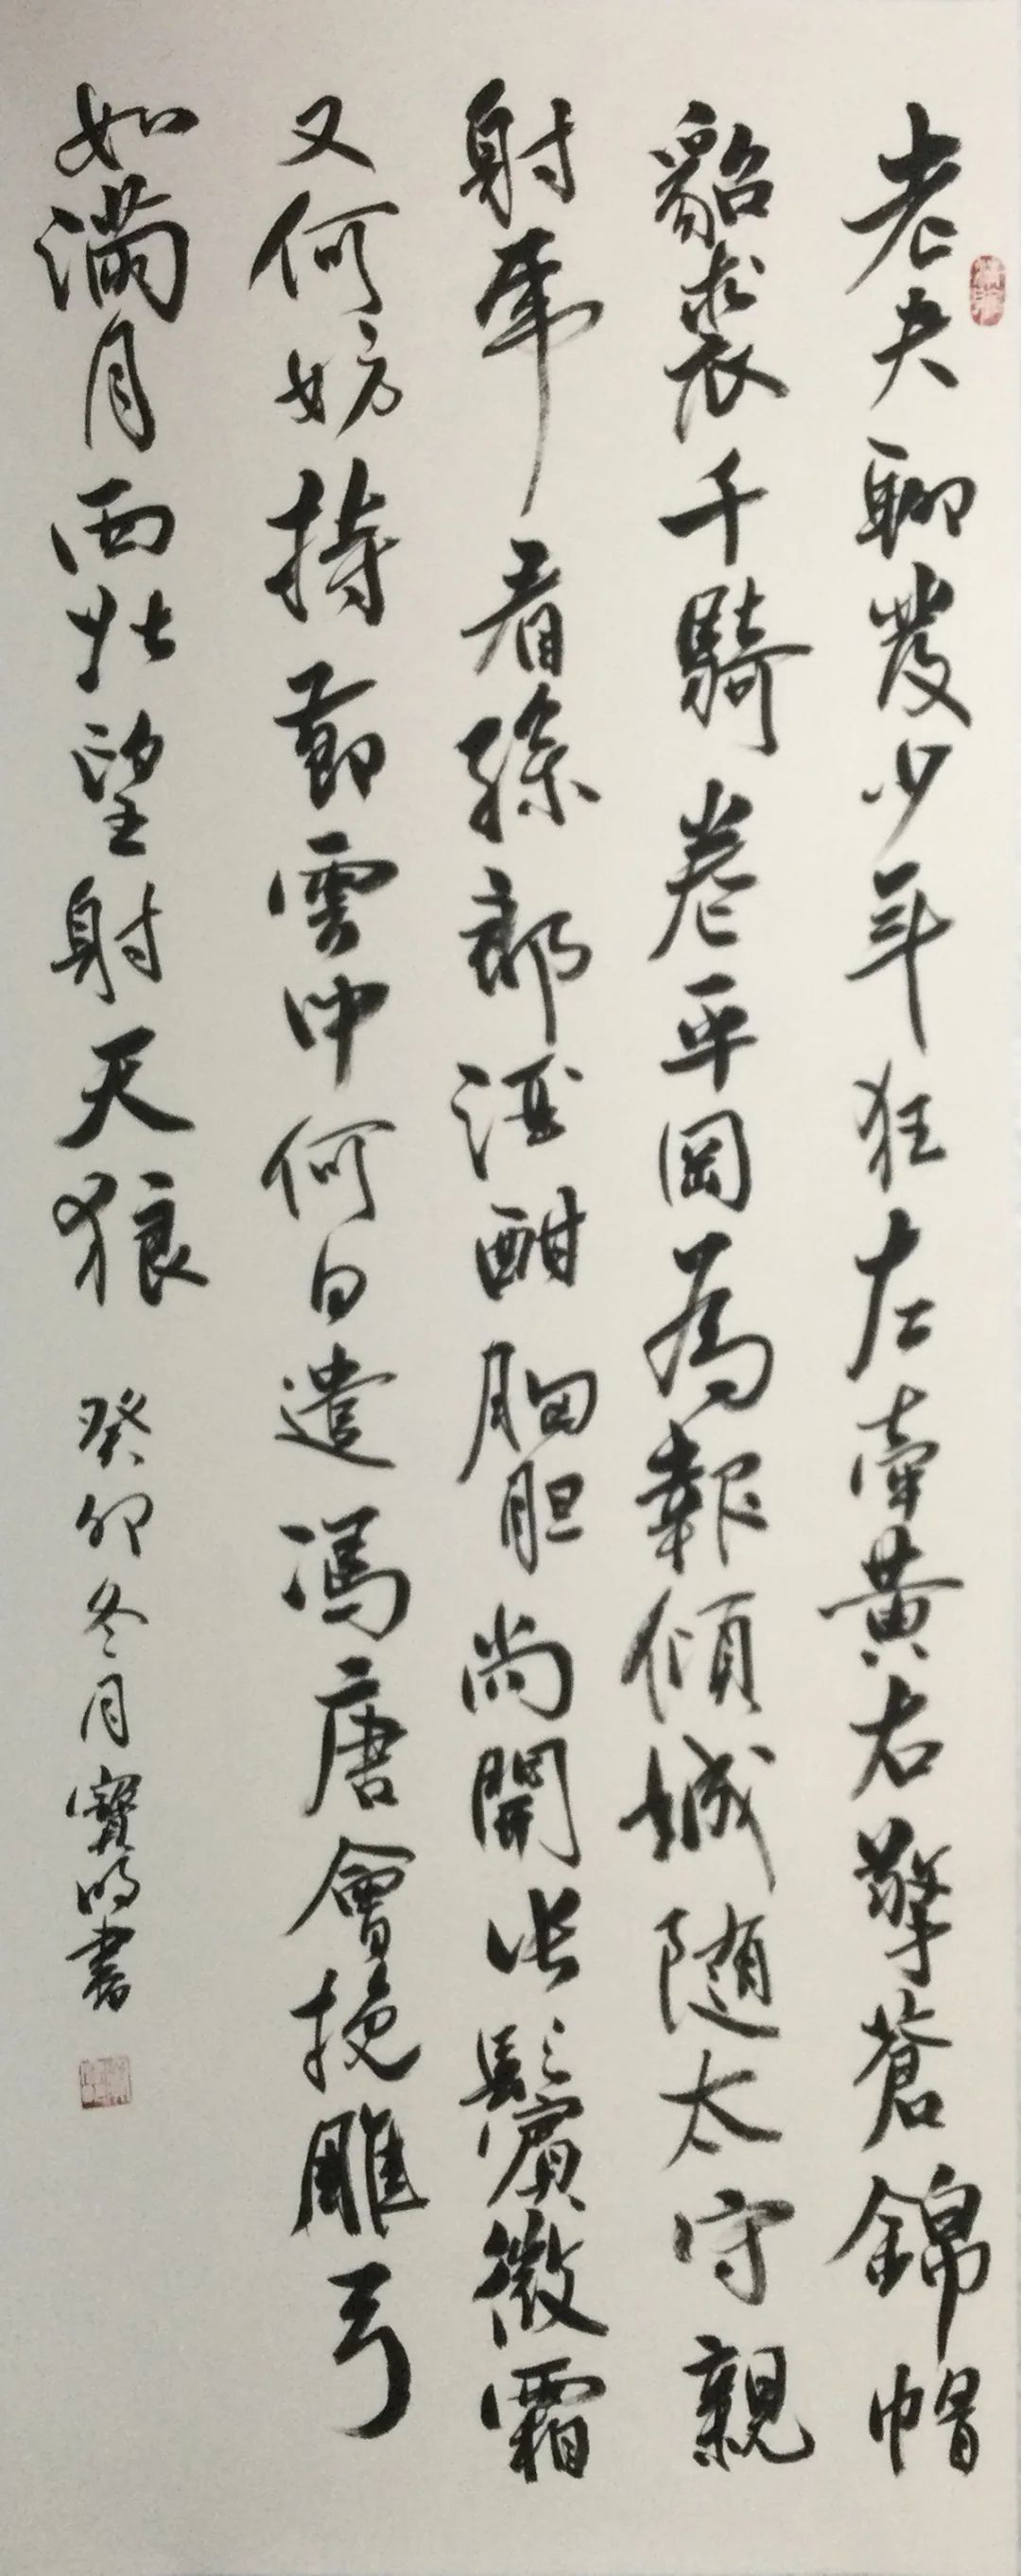 老夫聊發少年狂左牽黃右擎蒼錦帽
貂裘千騎卷平岡為報傾城随太守親
射虎看孫郎酒酣胸胆尚開張鬢微霜
又何妨持節雲中何日遣馮唐會挽雕弓
如滿月西北望射天狼 癸卯冬月寶明書